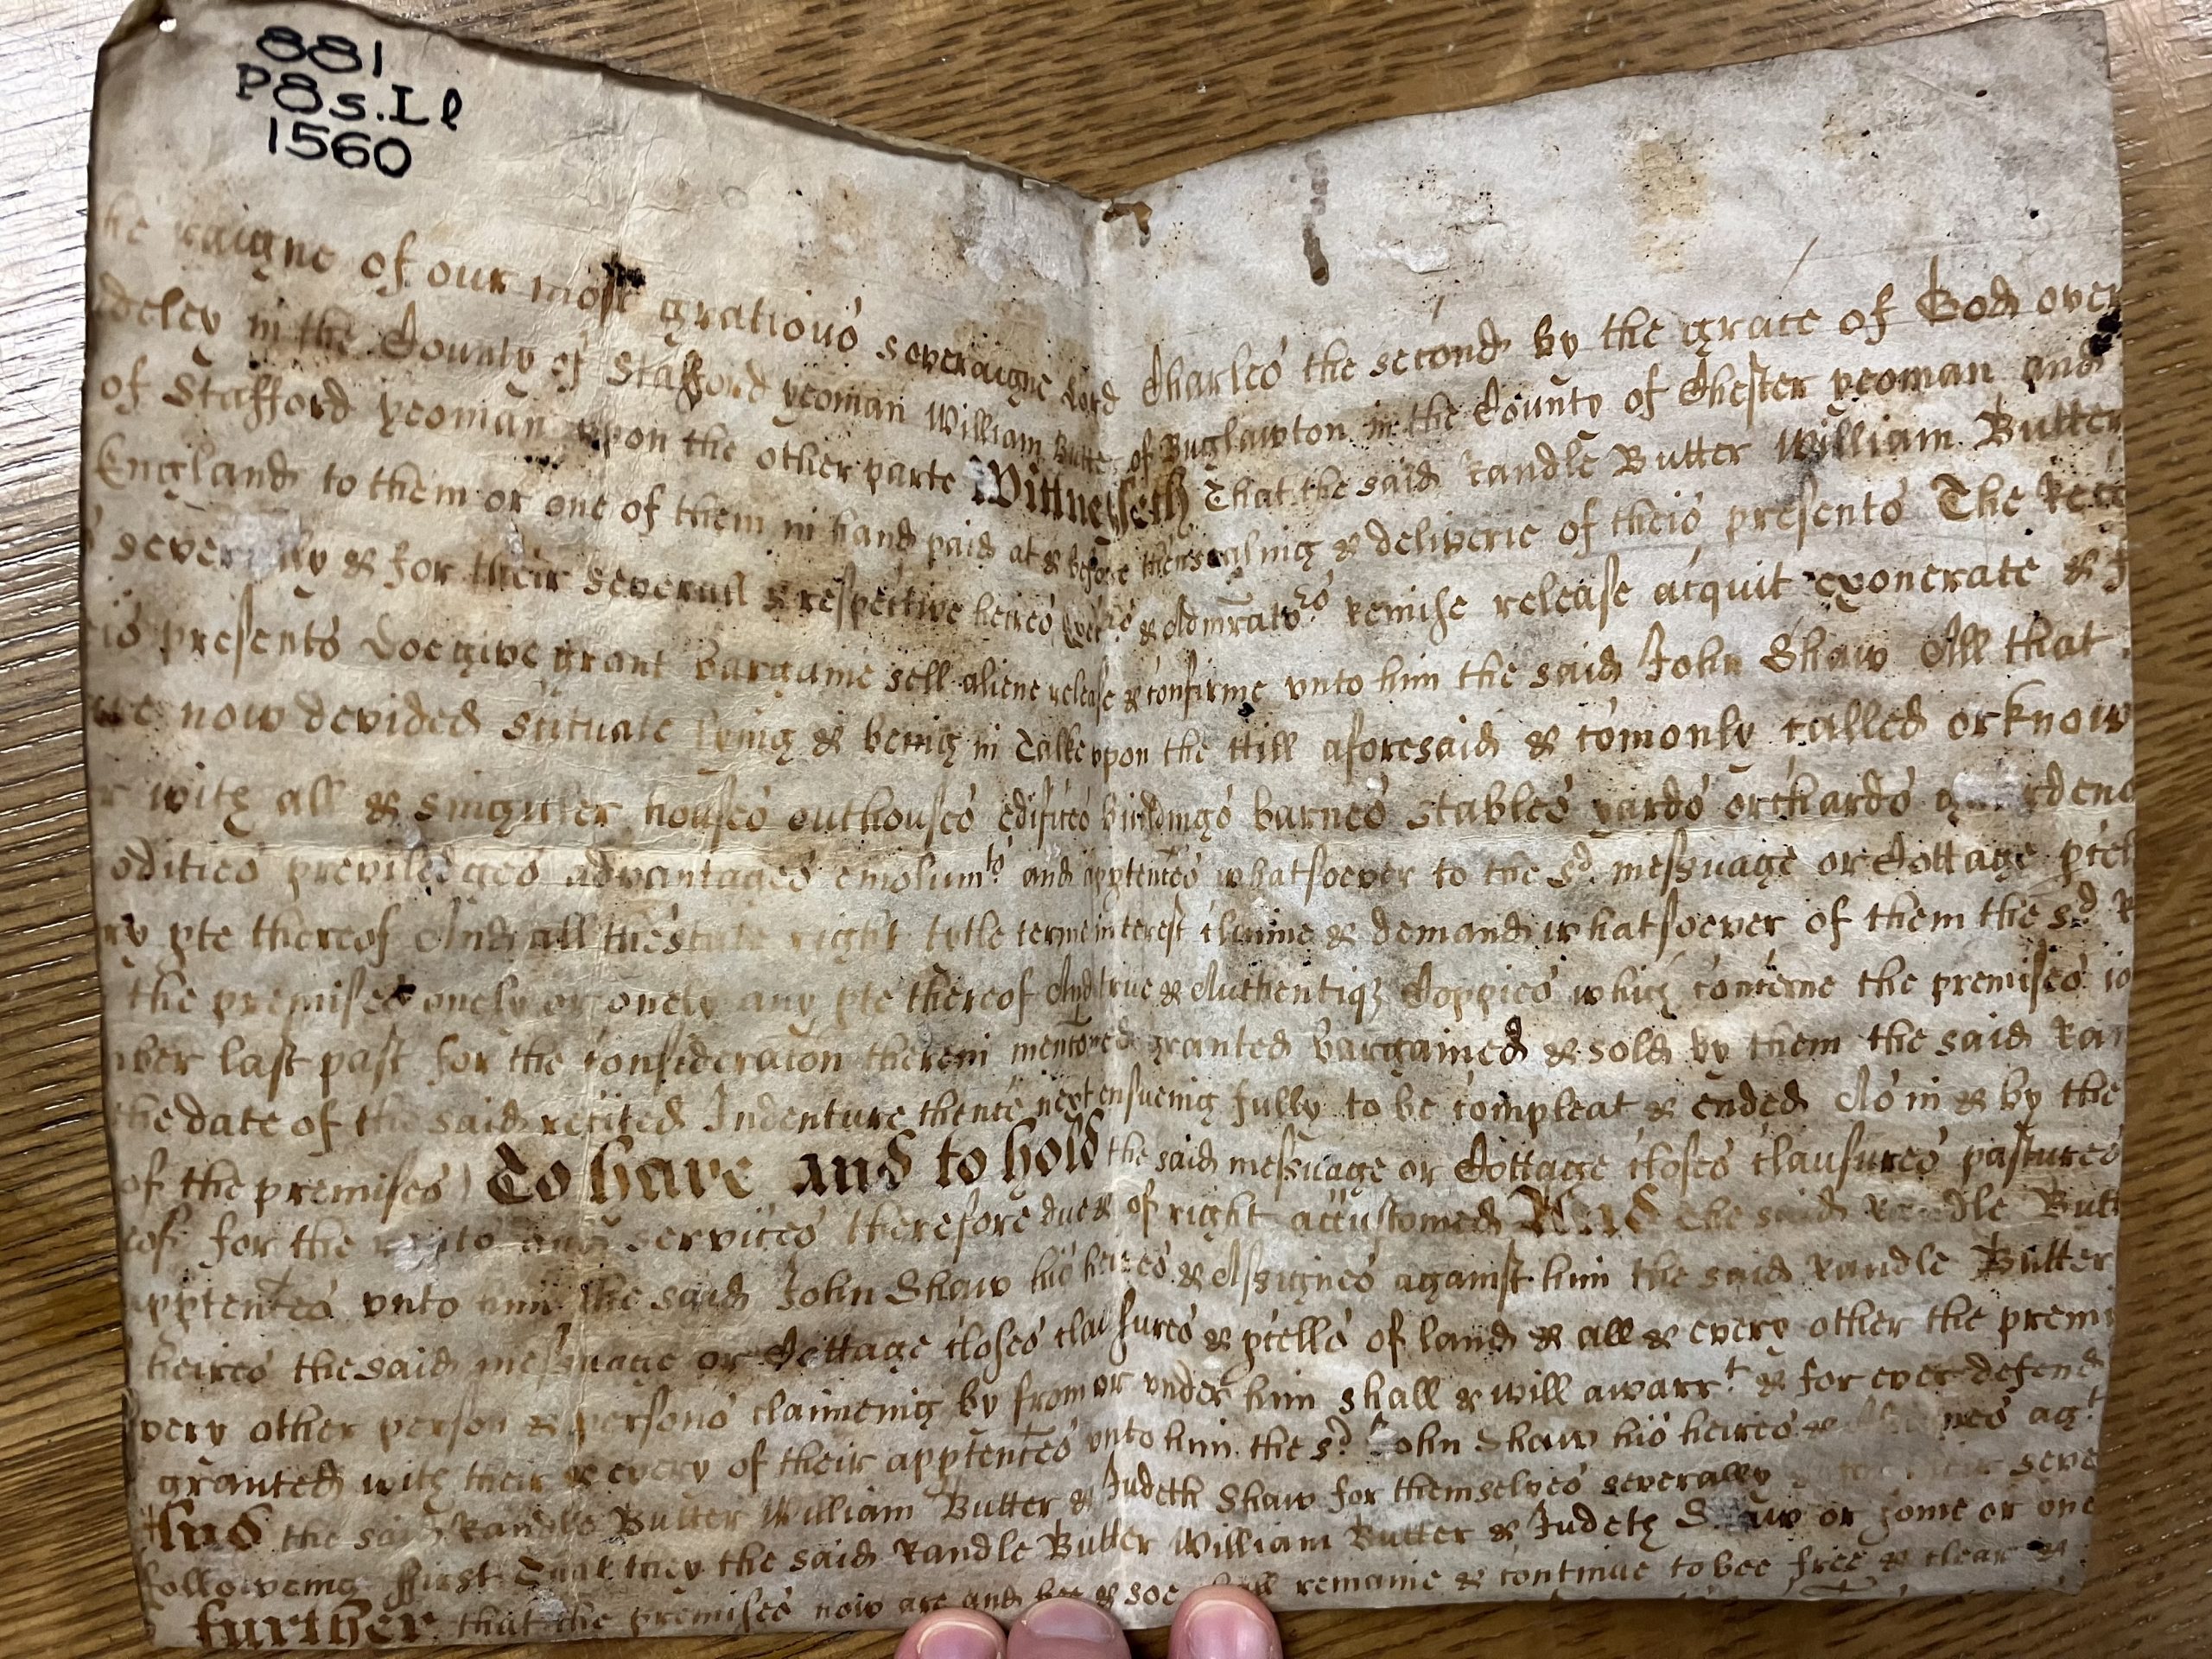 881
P8s.Ll
1560
he raigne of our most gratious soveraigne Lord Charles the second by the grace of God over
deley in the County of Stafford yeoman William Butter of Buglawton in the County of Chester yeoman and
of Stafford yeoman upon the other parte Wittnesseth That the said Randle Butter William Butter
England to them or one of them in hand paid at & before thensealing & deliverie of theis presents The Rece
severally & for their severall & respective heires & Admrators Remise release acquit exonerate &
eis presents Doe give grant bargaine sell aliene release & confirme vnto him the said John Shaw All that
now devided scituate lyeing & being in Talke vpon the Hill aforesaid & comonly called or know
r with all & singuler houses outhouses edifices buildings barnes stables yards orchards
odities previledges advantages emolumts and apptences whatsoever to the sd. messuage or Cottage pcel
ry pte thereof And all the state right tytle terme interest clayme & demand whatsoever of them the sd R
the premises onely or onely any pte thereof And true & Authentiq Coppies which concerne the premises io
ber last past for the consideracon therein menconed granted bargained & sold by them the said Ran
the date of the said recited Indenture thence next ensueing fully to be compleat & ended As in & by the
of the premises) To have and to hold the said messuage or Cottage closes clausures pastures
eof for the rents and services therefore due & of right accustomed And the said Randle Butt
apptences vnto him the said John Shaw his heires & Assignes against him the said Randle Butter
heires the said messuage or Cottage closes clausures & pcells of land & all & every other the premi
very other person & persons claimeing by from or vnder him shall & will awarrt & for ever defend
granted with their & every of their apptences vnto him the sd. John Shaw his heires & agt
And the said Randle Butter William Butter & Judeth Shaw for themselves severally seve
followeing ffirst That they the said Randle Butter William Butter & Judeth Shaw or some or one
further that the premises now are and bee & soe shall remaine & continue to bee free & clear &